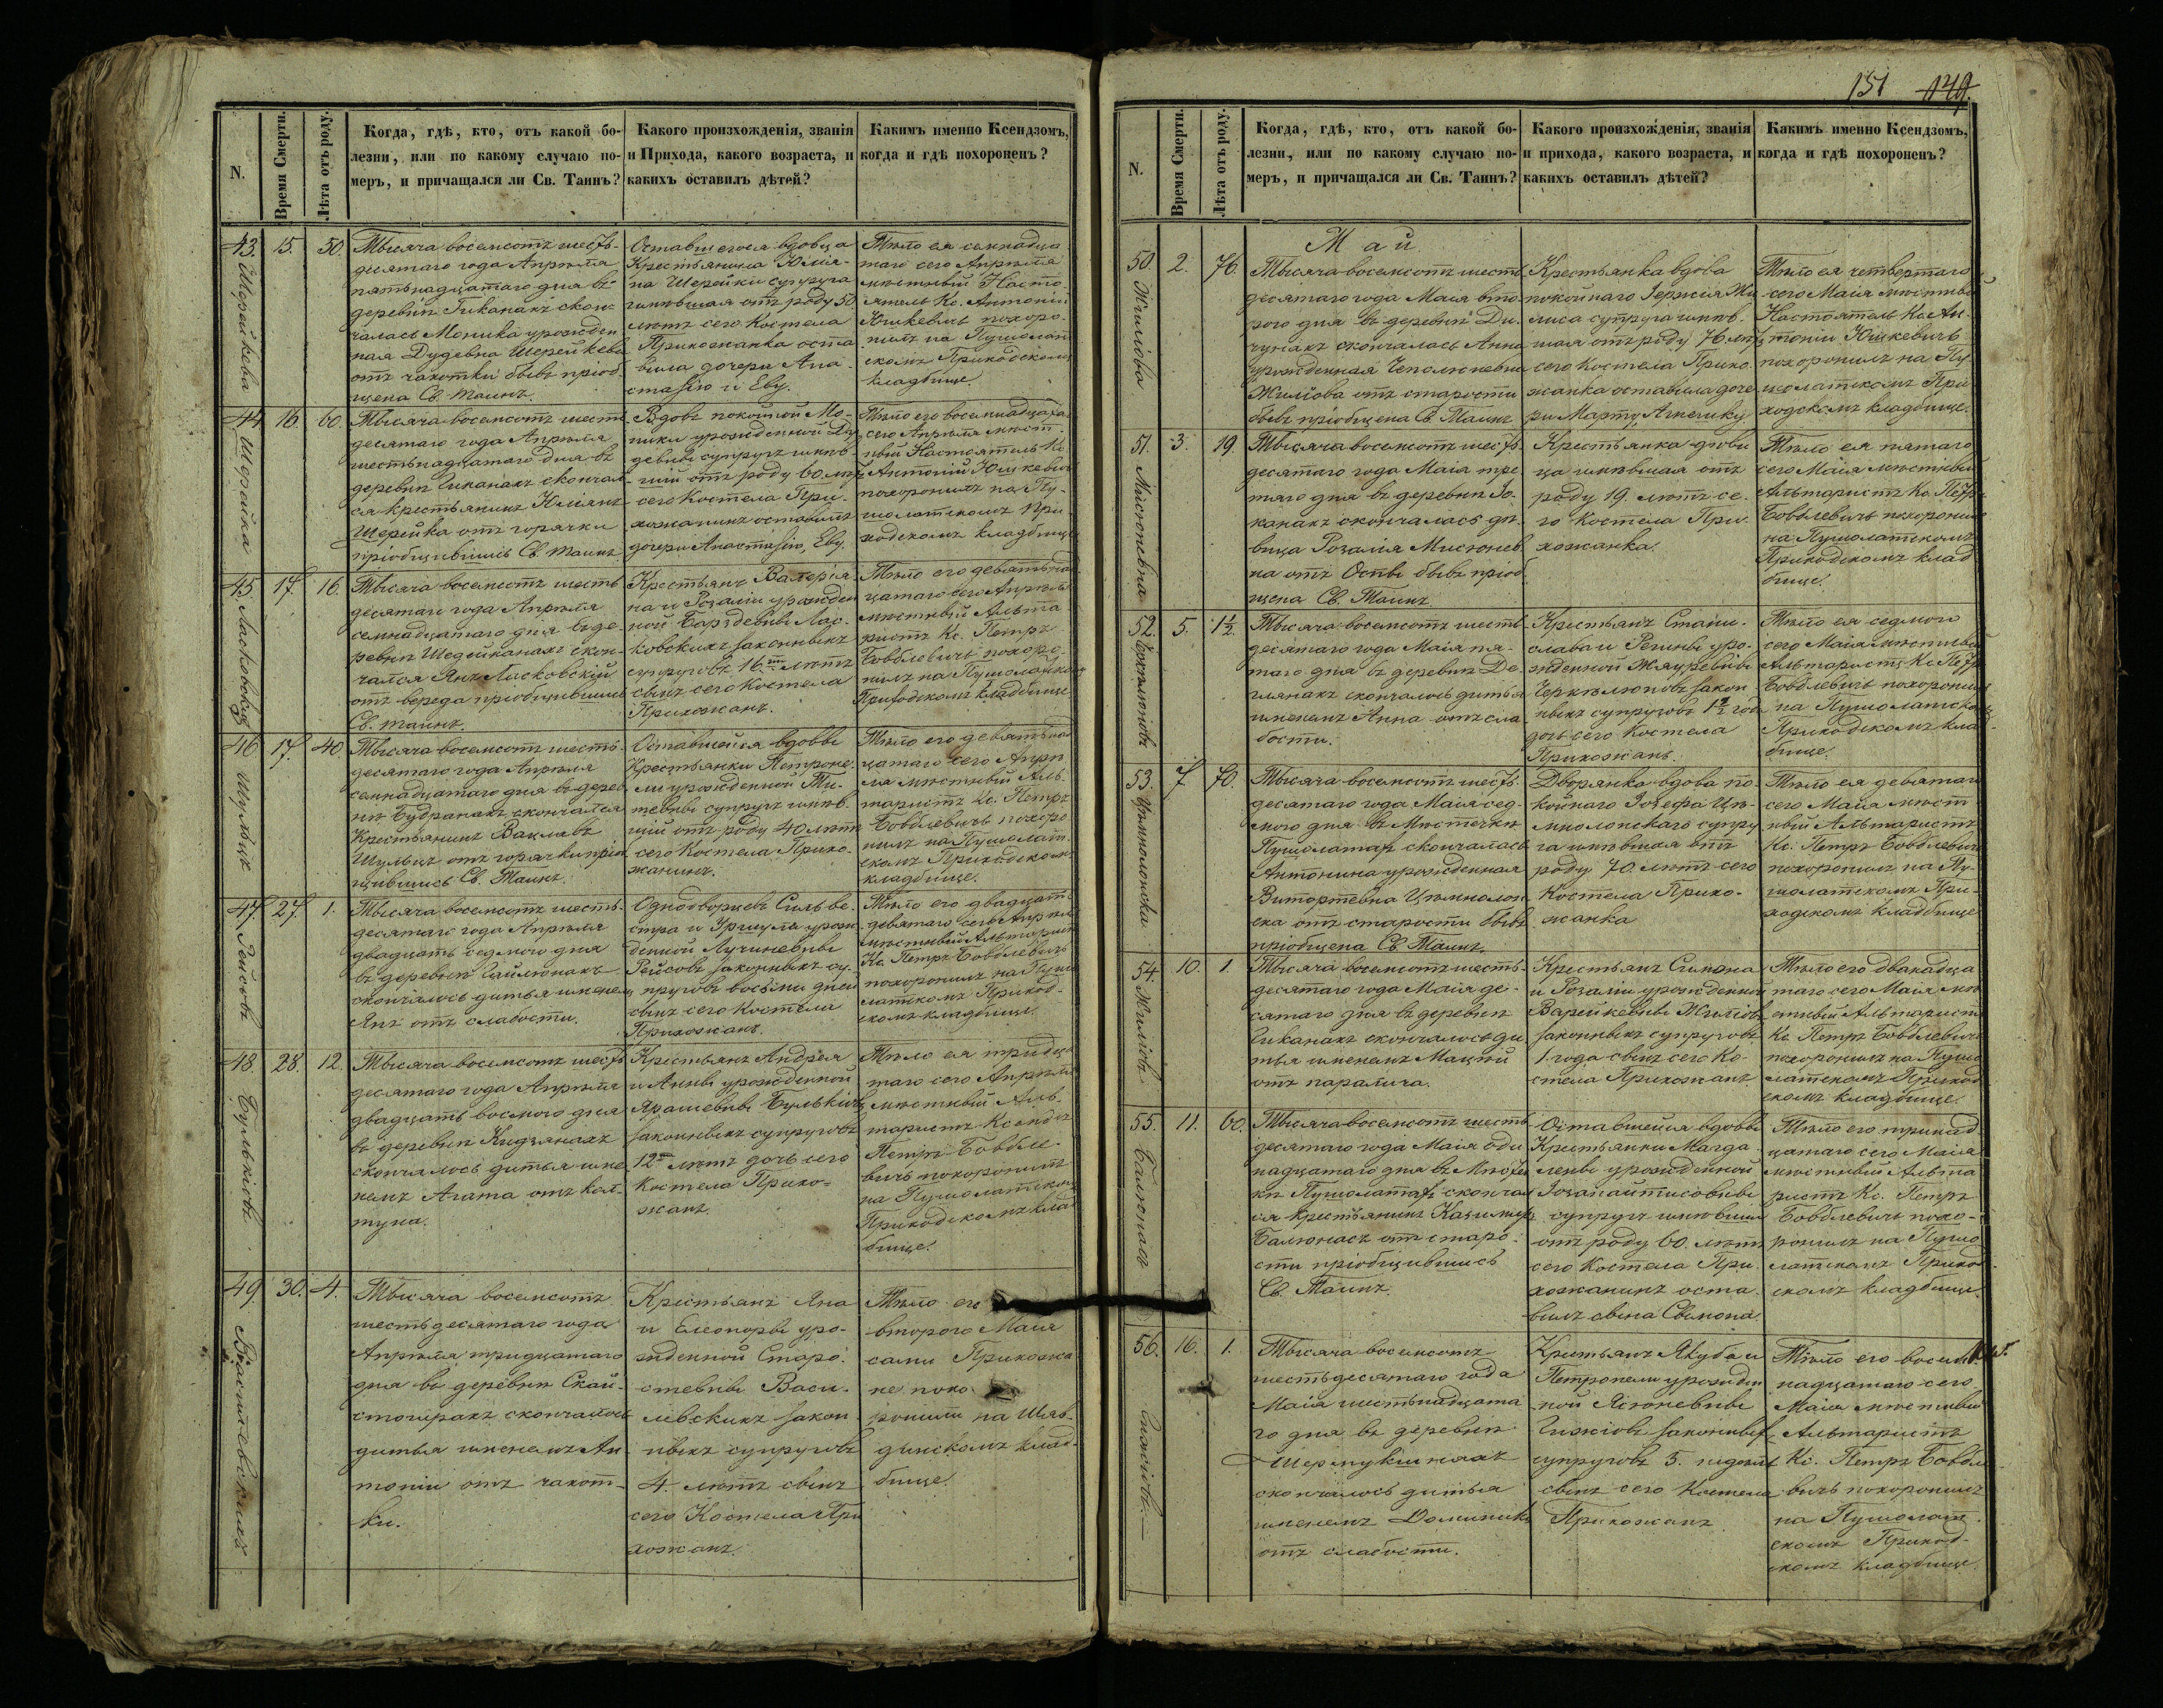 N.
Время Смерти.
Лѣта отъ роду.
Когда, гдѣ, кто, отъ какой бо-
лезни, или по какому случаю по-
меръ, и причащался ли Св. Таинъ?
Какого произхожденія, званія
и Прихода, какого возраста, и
какихъ оставилъ дѣтей?
Какимъ именно Ксендзомъ,
когда и гдѣ похороненъ?
43. 15. 50.
Шерейкова
Тысяча восемсотъ шесть-
десятаго года Апрѣля
пятьнадцатаго дня въ
деревнѣ Гиканахъ скон-
чалась Моника урожден
ная Дудевна Шерейкова
отъ чахотки бывъ пріоб-
щена Св. Таинъ.
Оставшегося вдовца
Крестьянина Юліа-
на Шерейки супруга
имѣвшая отъ роду 50
лѣтъ сего Костела
Прихожанка оста
вила дочери Ана-
стазію и Еву.
Тѣло ея семнадца
таго сего Апрѣля
мѣстный Насто-
ятель Кс. Антоній
Юшкевичъ похоро-
нилъ на Пушолат
скомъ Приходскомъ
кладбище.
44 16. 60.
Шерейка
Тысяча восемсотъ шесть
десятаго года Апрѣля
шестьнадцатаго дня въ
деревнѣ Гиканахъ скончал
ся крестьянинъ Юліанъ
Шерейка отъ горячки
пріобщившись Св. Таинъ
Вдовъ покойной Мо-
ники урожденной Ду
девны супругъ имѣв-
шій отъ роду 60 лѣтъ
сего Костела При-
хожанинъ оставилъ
дочери Анастазію, Еву.
Тѣло его восемнадцата
сего Апрѣля мѣст-
ный Настоятель Кс.
Антоній Юшкевичъ
похоронилъ на Пу-
шолатскомъ При-
ходскомъ кладбище
45. 17. 16.
Ласковский
Тысяча восемсотъ шесть
десятаго года Апрѣля
семнадцатаго дня въ де-
ревнѣ Шедейканахъ скон-
чался Янъ Ласковскій
отъ вереда пріобщившись
Св. Таинъ.
Крестьянъ Валеріа-
на и Розаліи урожден
ной Барздевны Лас-
ковскихъ законныхъ
супруговъ 16ти лѣтъ
сынъ сего Костела
Прихожанъ.
Тѣло его девятьнад
цатаго сего Апрѣля
мѣстный Альта
ристъ Кс. Петръ
Бовблевичъ похоро-
нилъ на Пушолатском
Приходскомъ кладбище.
46 17. 40.
Шульцъ
Тысяча восемсотъ шесть-
десятаго года Апрѣля
семнадцатаго дня въ дерев-
нѣ Будранахъ скончался
Крестьянинъ Вацлавъ
Шульцъ отъ горячки пріоб
щившись Св. Таинъ.
Оставшейся вдовы
Крестьянки Петроне-
ли урожденной Ти-
тевны супругъ имѣв-
шій отъ роду 40 лѣтъ
сего Костела Прихо-
жанинъ.
Тѣло его девятьнад
цатаго сего Апрѣ
ля мѣстный Аль-
таристъ Кс. Петръ
Бовблевичъ похоро
нилъ на Пушолат-
скомъ Приходскомъ
кладбище.
47. 27. 1.
Рейсовъ
Тысяча восемсотъ шесть-
десятаго года Апрѣля
двадцать седмого дня
въ деревнѣ Гайлюнахъ
скончалось дитья именем
Янъ отъ слабости.
Однодворцевъ Сильве-
стра и Уршули урож
денной Лучиневны
Рейсовъ законныхъ су-
пруговъ восьми дней
сынъ сего Костела
Прихожанъ.
Тѣло его двадцать
девятаго сего Апрѣля
мѣстный Альтаристъ
Кс. Петръ Бовблевичъ
похоронилъ на Пушо
латскомъ Приход-
скомъ кладбище.
48. 28. 12.
Булькiовъ
Тысяча восемсотъ шесть
десятаго года Апрѣля
двадцать восмого дня
въ деревнѣ Кидзянахъ
скончалось дитья име
немъ Агата отъ кол-
туна.
Крестьянъ Андрея
и Анны урожденной
Ярашевны Булькiовъ
законныхъ супруговъ
12ти лѣтъ дочь сего
Костела Прихо-
жанъ.
Тѣло ея тридца
таго сего Апрѣля
мѣстный Аль-
таристъ Ксендзъ
Петръ Бовбле-
вичъ похоронилъ
на Пушолатскомъ
Приходскомъ клад
бище.
49. 30. 4.
Василевскихъ
Тысяча восемсотъ
шестьдесятаго года
Апрѣля тридцатаго
дня въ деревнѣ Скай-
стгирахъ скончалось
дитья именемъ Ан-
тоній отъ чахот-
ки.
Крестьянъ Яна
и Елеоноры уро-
жденной Старо-
стевны Васи-
левскихъ закон-
ныхъ супруговъ
4 лѣтъ сынъ
сего Костела При
хожанъ.
Тѣло его
второго Маія
сами Прихожа
не похо
ронили на Шяв-
динскомъ клад-
бище.
151 149.
N.
Время Смерти.
Лѣта отъ роду.
Когда, гдѣ, кто, отъ какой бо-
лезни, или по какому случаю по-
меръ, и причащался ли Св. Таинъ?
Какого произхожденія, званія
и прихода, какого возраста, и
какихъ оставилъ дѣтей?
Какимъ именно Ксендзомъ,
когда и гдѣ похороненъ?
Май
50. 2. 76.
Жилiова
Тысяча восемсотъ шесть
десятаго года Маія вто-
рого дня въ деревнѣ Ди-
чунахъ скончалась Анна
урожденная Чеполюневна
Жилiова отъ старости
бывъ пріобщена Св. Таинъ
Крестьянка вдова
покойнаго Іержія Жи
лиса супруга имѣв-
шая отъ роду 76 лѣтъ
сего Костела Прихо-
жанка оставила доче
ри Марту, Агнешку.
Тѣло ея четвертаго
сего Маія мѣстный
Настоятель Кс. Ан-
тоній Юшкевичъ
похоронилъ на Пу-
шолатскомъ При-
ходскомъ кладбище.
51. 3. 19.
Мисюневна
Тысяча восемсотъ шесть
десятаго года Маія тре
тяго дня въ деревнѣ Іо-
канахъ скончалась дѣ-
вица Розалія Мисюнев
на отъ Оспы бывъ пріоб
щена Св. Таинъ
Крестьянка дѣви
ца имѣвшая отъ
роду 19. лѣтъ се-
го Костела При-
хожанка.
Тѣло ея пятаго
сего Маія мѣстный
Альтаристъ Кс. Петръ
Бовблевичъ похоронилъ
на Пушолатскомъ
Приходскомъ клад
бище.
52. 5. 1½.
Тысяча восемсотъ шесть
десятаго года Маія пя-
таго дня въ деревнѣ Де-
глянахъ скончалось дитья
именемъ Анна отъ сла
бости.
Крестьянъ Стани-
слава и Регины уро-
жденной Жяуревны
закон
ныхъ супруговъ 1½ год
дочь сего Костела
Прихожанъ.
Тѣло ея седмого
сего Маія мѣстный
Альтаристъ Кс. Петръ
Бовблевичъ похоронилъ
на Пушолатском
Приходскомъ клад
бище.
53. 7 70.
Тысяча восемсотъ шесть-
десятаго года Маія сед-
мого дня въ Мѣстечкѣ
Пушолатахъ скончалась
Антонина урожденная
Витортевна Цѣмнолон-
ска отъ старости бывъ
пріобщена Св. Таинъ.
Дворянка вдова по-
койнаго Іозефа Цѣ-
мнолонскаго супру
га имѣвшая отъ
роду 70. лѣтъ сего
Костела Прихо-
жанка
Тѣло ея девятаго
сего Маія мѣст-
ный Альтаристъ
Кс. Петръ Бовблевичъ
похоронилъ на Пу-
шолатскомъ При-
ходскомъ кладбище
54. 10. 1.
Жилiовъ
Тысяча восемсотъ шесть-
десятаго года Маія де-
сятаго дня въ деревнѣ
Гиканахъ скончалось ди
тья именемъ Мацѣй
отъ паралича.
Крестьянъ Симона
и Розаліи урожденной
Варейкевны Жилiовъ
законныхъ супруговъ
1 года сынъ сего Ко-
стела Прихожанъ
Тѣло его дванадца
таго сего Маія мѣ
стный Альтаристъ
Кс. Петръ Бовблевичъ
похоронилъ на Пушо
латскомъ Приход
скомъ кладбище.
55. 11. 60.
Балюнасъ
Тысяча восемсотъ шесть
десятаго года Маія оди
надцатаго дня въ Мѣстеч
кѣ Пушолатахъ скончал
ся крестьянинъ Казимиръ
Балюнасъ отъ старо-
сти пріобщившись
Св. Таинъ.
Оставшейся вдовы
Крестьянки Магда-
лены урожденной
супругъ имѣвшій
отъ роду 60. лѣтъ
сего Костела При-
хожанинъ оста-
вилъ сына Сымона.
Тѣло его тринад
цатаго сего Маія
мѣстный Альта
ристъ Кс. Петръ
Бовблевичъ похо-
ронилъ на Пушо
латскомъ Приход
скомъ кладбище.
56. 16. 1.
Тысяча восемсотъ
шестьдесятаго года
Маія шестьнадцата
го дня въ деревнѣ
Шермукшняхъ
скончалось дитья
именемъ Доминикъ
отъ слабости.
Крестьянъ Якуба и
Петронели урожден
ной Ясюневны
законныхъ
супруговъ 5. недѣль
сынъ сего Костела
Прихожанъ
Тѣло его восем
надцатаго сего
Маія мѣстный
Альтаристъ
Кс. Петръ Бовбле
вичъ похоронилъ
на Пушолат-
скомъ Приход-
скомъ кладбище.